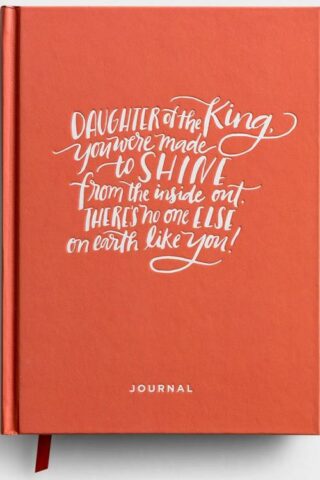 DAUGHTER of the King,
you were made
to SHINE
from the inside out.
THERE'S no one ELSE
on earth like you!
JOURNAL